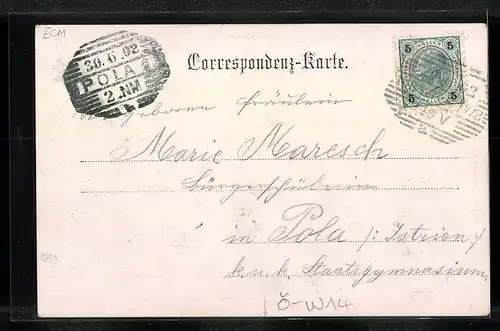 ECM
30.6.02
POLA 1
2.NM
b
Correspondenz-Karte.
5 HELLER 5
5 5
a
Wohlgeboren Fräulein
Marie Maresch
Bürgerschülerin
in Pola /: Istrien :/
k. u. k. Staatsgymnasium.
Ö-W14